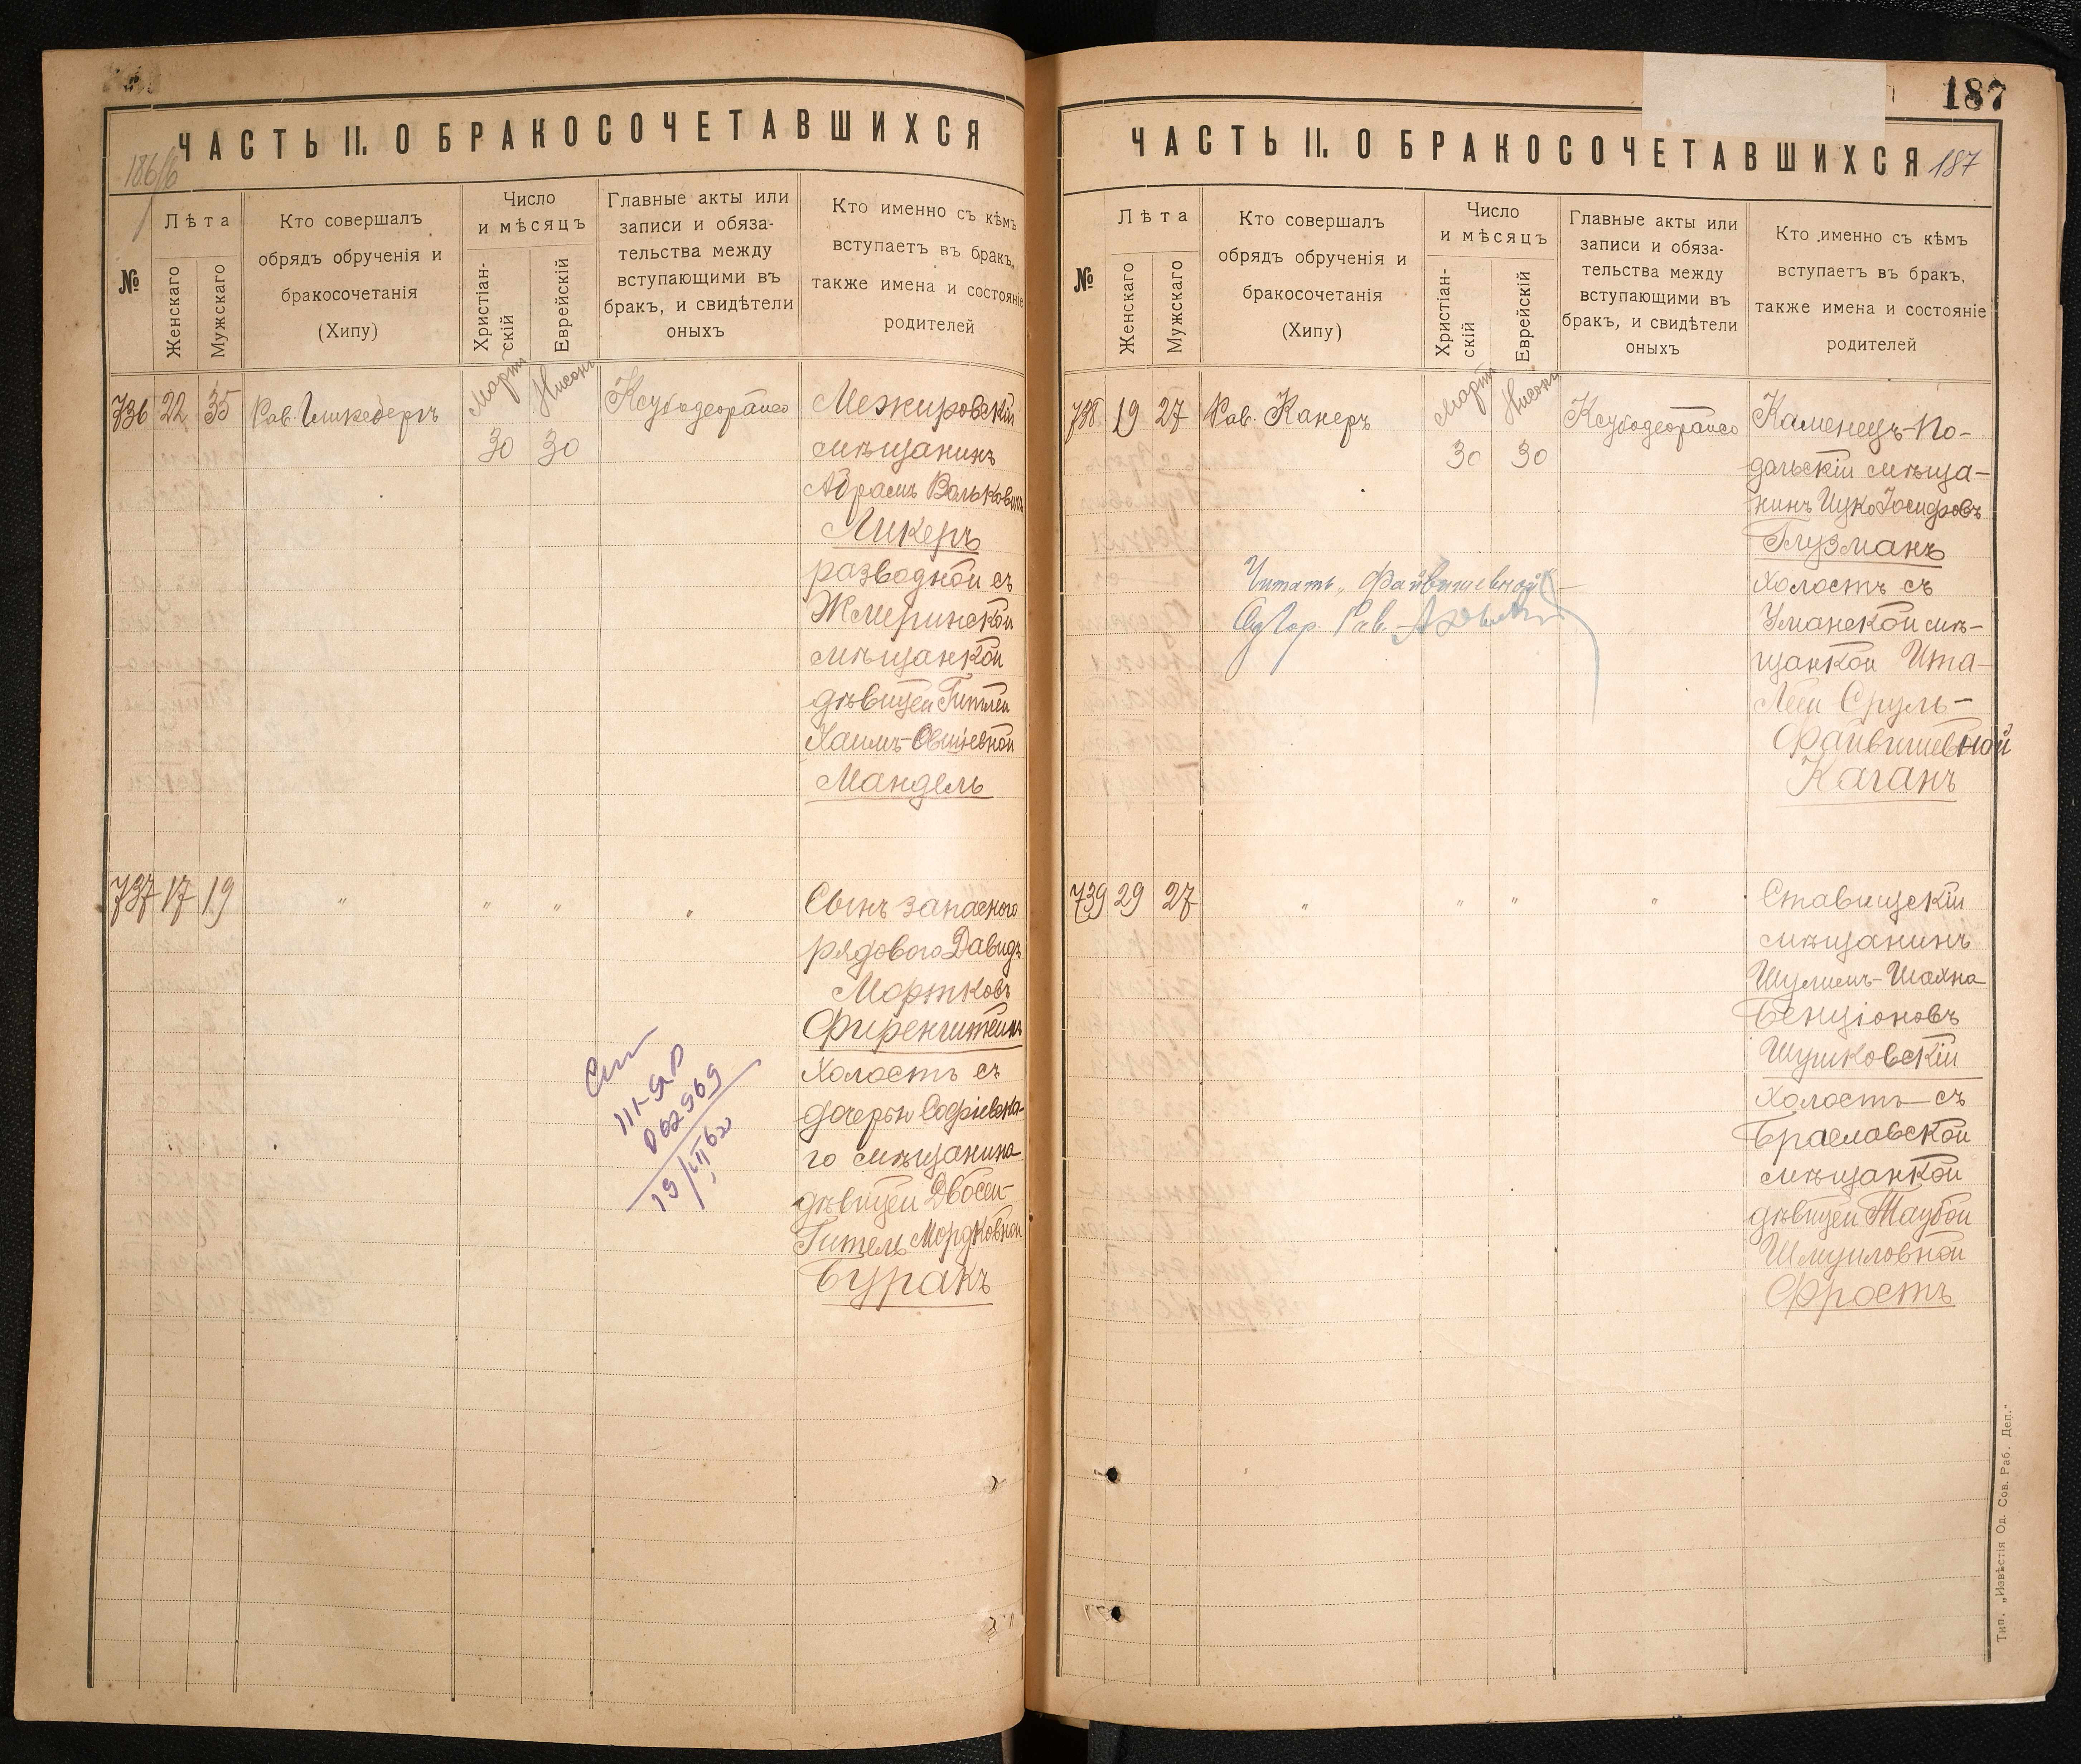 ЧАСТЬ II. О БРАКОСОЧЕТАВШИХСЯ
186/б
№
Лѣта
Женскаго
Мужскаго
Кто совершалъ
обрядъ обрученія и
бракосочетанія
(Хипу)
Число
и мѣсяцъ
Христіан-
скій
Еврейскій
Главные акты или
записи и обяза-
тельства между
вступающими въ
бракъ, и свидѣтели
оныхъ
Кто именно съ кѣмъ
вступаетъ въ бракъ,
также имена и состояніе
родителей
736 22 35 Рав.
Мартъ 30
Нисонъ 30
Межировскій
мѣщанинъ
Абрамъ Вольковичъ
Ликеръ
разводной съ
Жмеринской
мѣщанкой
дѣвицей Гитлей
Хаимъ-Овшіевной
Мандель
737 17 19 " " " "
Сынъ запасного
рядового Давидъ
Мортковъ
Фиренштейнъ
Холостъ съ
дочерью Софіевска-
го мѣщанина
дѣвицей Двосей-
Гитель Мордковной
Буракъ
III-ЯР
062969
19/VII 62
187
ЧАСТЬ II. О БРАКОСОЧЕТАВШИХСЯ 187
№
Лѣта
Женскаго
Мужскаго
Кто совершалъ
обрядъ обрученія и
бракосочетанія
(Хипу)
Число
и мѣсяцъ
Христіан-
скій
Еврейскій
Главные акты или
записи и обяза-
тельства между
вступающими въ
бракъ, и свидѣтели
оныхъ
Кто именно съ кѣмъ
вступаетъ въ бракъ,
также имена и состояніе
родителей
738 19 27 Рав. Канеръ
Мартъ 30
Нисонъ 30
Каменецъ-По-
дольскій мѣща-
нинъ Ицко Іосифовъ
Глузманъ
Холостъ съ
Уманской мѣ-
щанкой Ита-
Леей Сруль-
Файвишевной
Каганъ
Читать „Файвишевной“
Гор. Рав.
739 29 27 " " " "
Ставищскій
мѣщанинъ
Шулимъ-Шахна
Бенціоновъ
Шушковскій
Холостъ съ
Браславской
мѣщанкой
дѣвицей Таубой
Шмуиловной
Фростъ
Тип. „Извѣстія Од. Сов. Раб. Деп.“